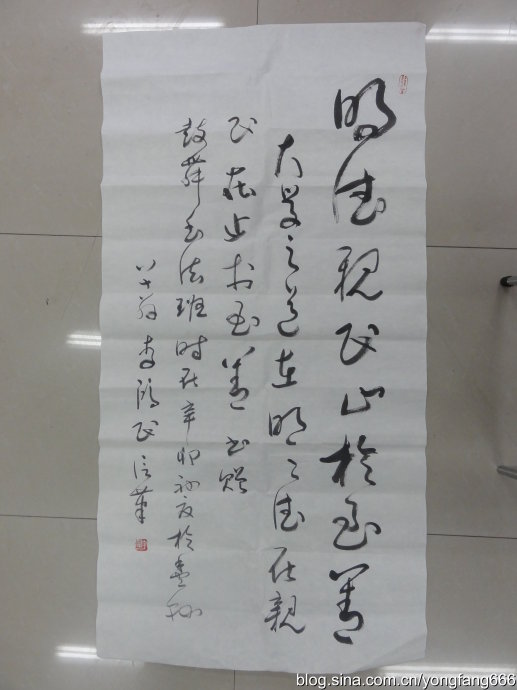 明德親民止於至善
大学之道在明々德在親
民在止於至善 书赠
书法班时在辛卯初夏於
八十翁 李 民信筆
blog.sina.com.cn/yongfang666